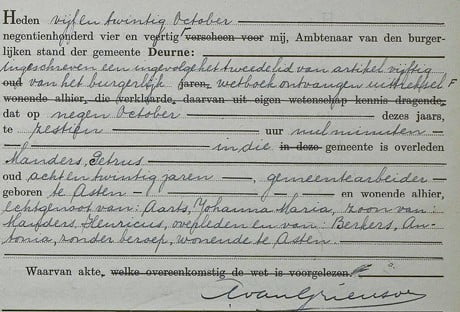 Heden vijf en twintig October
negentienhonderd vier en veertig verscheen voor mij, Ambtenaar van den burger-
lijken stand der gemeente Deurne:
ingeschreven een ingevolge het tweede lid van artikel vijftig
oud van het burgerlijk jaren, wetboek ontvangen uittreksel F
wonende alhier, die verklaarde, daarvan uit eigen wetenschap kennis dragende,
dat op negen October dezes jaars,
te zestien uur nul minuten
in die in deze gemeente is overleden
Manders, Petrus
oud acht en twintig jaren, gemeentearbeider
geboren te Asten en wonende alhier,
echtgenoot van: Aarts, Johanna Maria, zoon van:
Manders, Henricus, overleden en van: Berkers, An-
tonia, zonder beroep, wonende te Asten.
Waarvan akte, welke overeenkomstig de wet is voorgelezen.